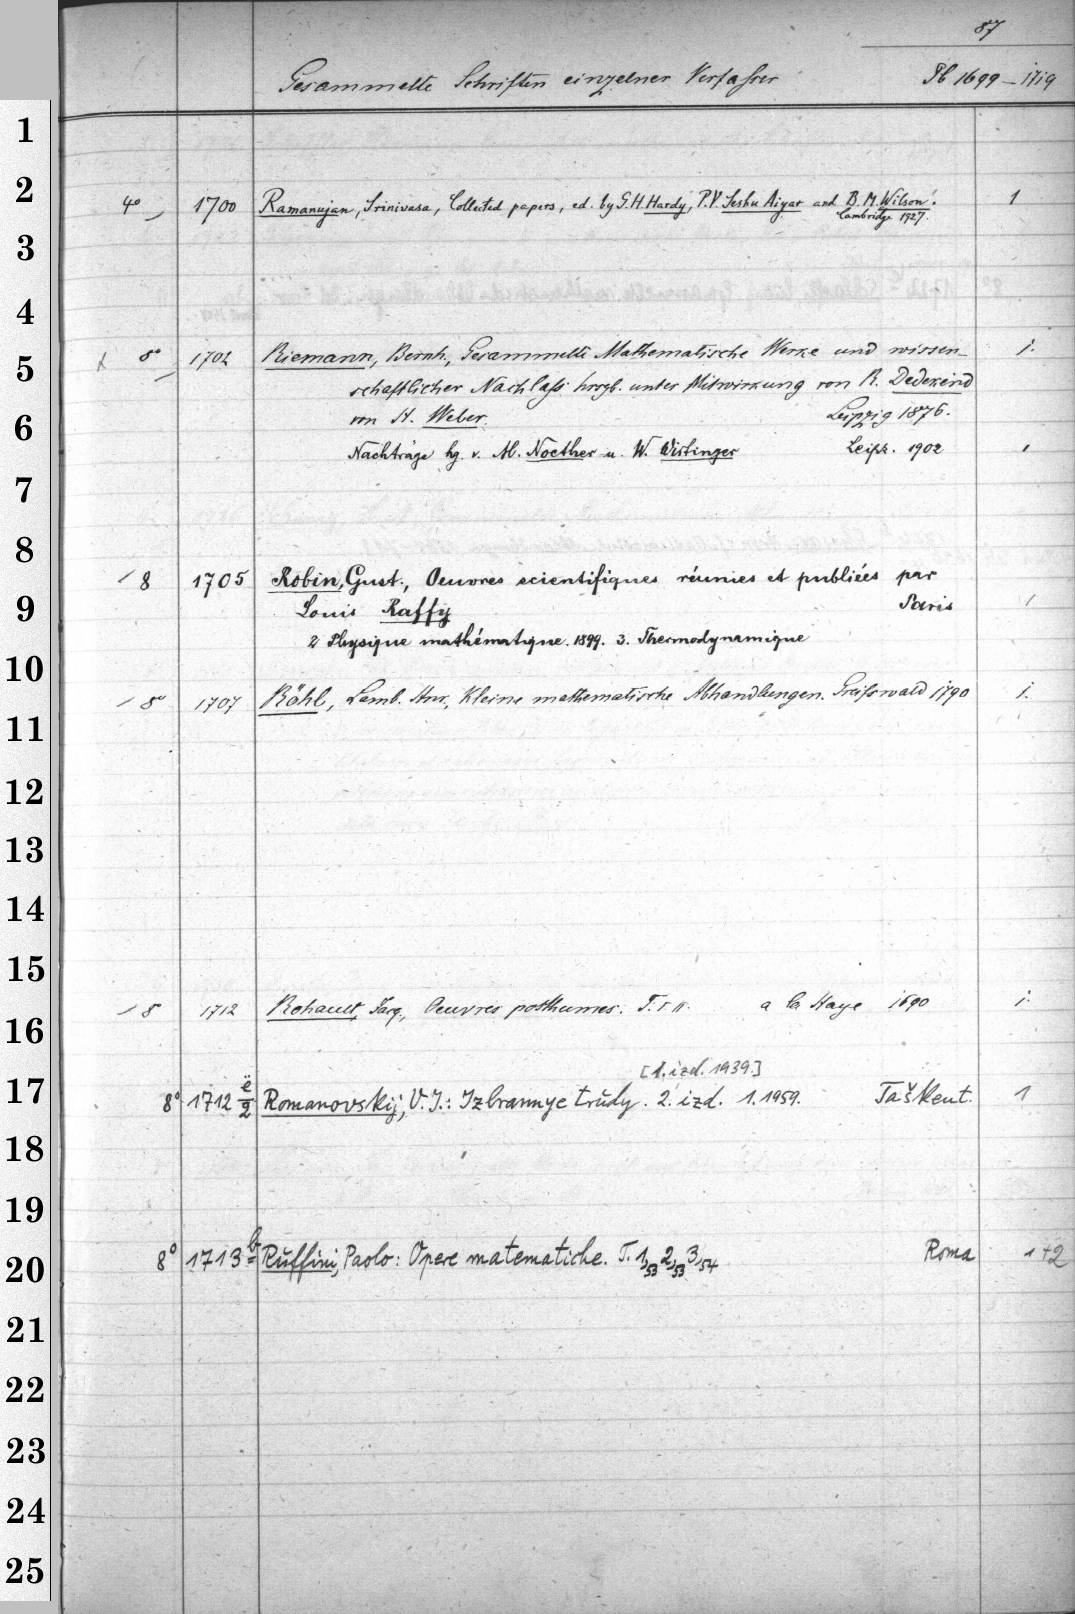 87
Gesammelte Schriften einzelner Verfasser Pb 1699–1719
1
2
4° 1700 Ramanujan, Srinivasa, Collected papers, ed. by G.H. Hardy, P.V. Seshu Aiyar and B.M. Wilson. 1
Cambridge 1927.
3
4
5
8° 1702 Riemann, Bernh., Gesammelte Mathematische Werke und wissen- 1.
schaftlicher Nachlaß hrsgb. unter Mitwirkung von R. Dedekind
6
von H. Weber. Leipzig 1876.
Nachträge hg. v. M. Noether u. W. Wirtinger Leipz. 1902 1
7
8
8 1705 Robin, Gust., Oeuvres scientifiques réunies et publiées par
9
Louis Raffy Paris 1
2 Physique mathématique. 1899. 3. Thermodynamique
10
8° 1707 Röhl, Lamb. Hnr., Kleine mathematische Abhandlungen. Greifswald 1790 1.
11
12
13
14
15
8 1712 Rohault, Jaq., Oeuvres posthumes. T. I II. a la Haye 1690 1.
16
[1. izd. 1939.]
17
8° 1712 e/2 Romanovskij, V.I.: Izbrannye trudy. 2. izd. 1. 1959. Taškent. 1
18
19
20
8° 1713 b Ruffini, Paolo: Opere matematiche. T. 1,53 2,53 3,54 Roma 1+2
21
22
23
24
25